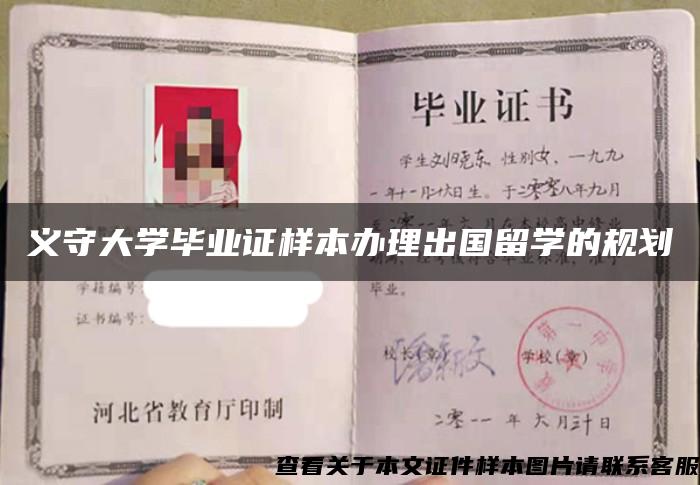 毕业证书
学生刘晓东 性别女、一九九
一年十一月二十六日生。于二零零八年九月
义守大学毕业证样本办理出国留学的规划
毕业。
学籍编号:
证书编号:
校长(章)
学校(章)
第一中学
河北省教育厅印制
二零一一年六月三十日
查看关于本文证件样本图片请联系客服